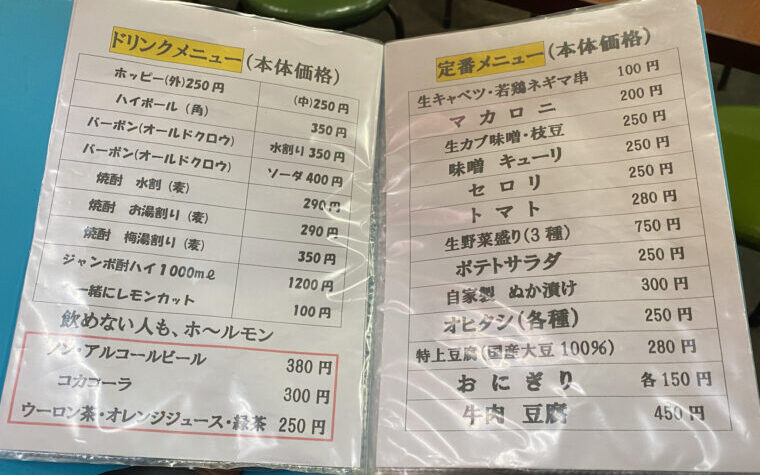 ドリンクメニュー(本体価格)
ホッピー(外)250円 (中)250円
ハイボール(角) 350円
バーボン(オールドクロウ) 水割り350円
バーボン(オールドクロウ) ソーダ400円
焼酎 水割(麦) 290円
焼酎 お湯割り(麦) 290円
焼酎 梅湯割り(麦) 350円
ジャンボ酎ハイ1000mℓ 1200円
一緒にレモンカット 100円
飲めない人も、ホ〜ルモン
ノン・アルコールビール 380円
コカコーラ 300円
ウーロン茶・オレンジジュース・緑茶 250円
定番メニュー(本体価格)
生キャベツ・若鶏ネギマ串 100円
マカロニ 200円
生カブ味噌・枝豆 250円
味噌 キューリ 250円
セロリ 250円
トマト 280円
生野菜盛り(3種) 750円
ポテトサラダ 250円
自家製 ぬか漬け 300円
オヒタシ(各種) 250円
特上豆腐(国産大豆100%) 280円
おにぎり 各150円
牛肉 豆腐 450円